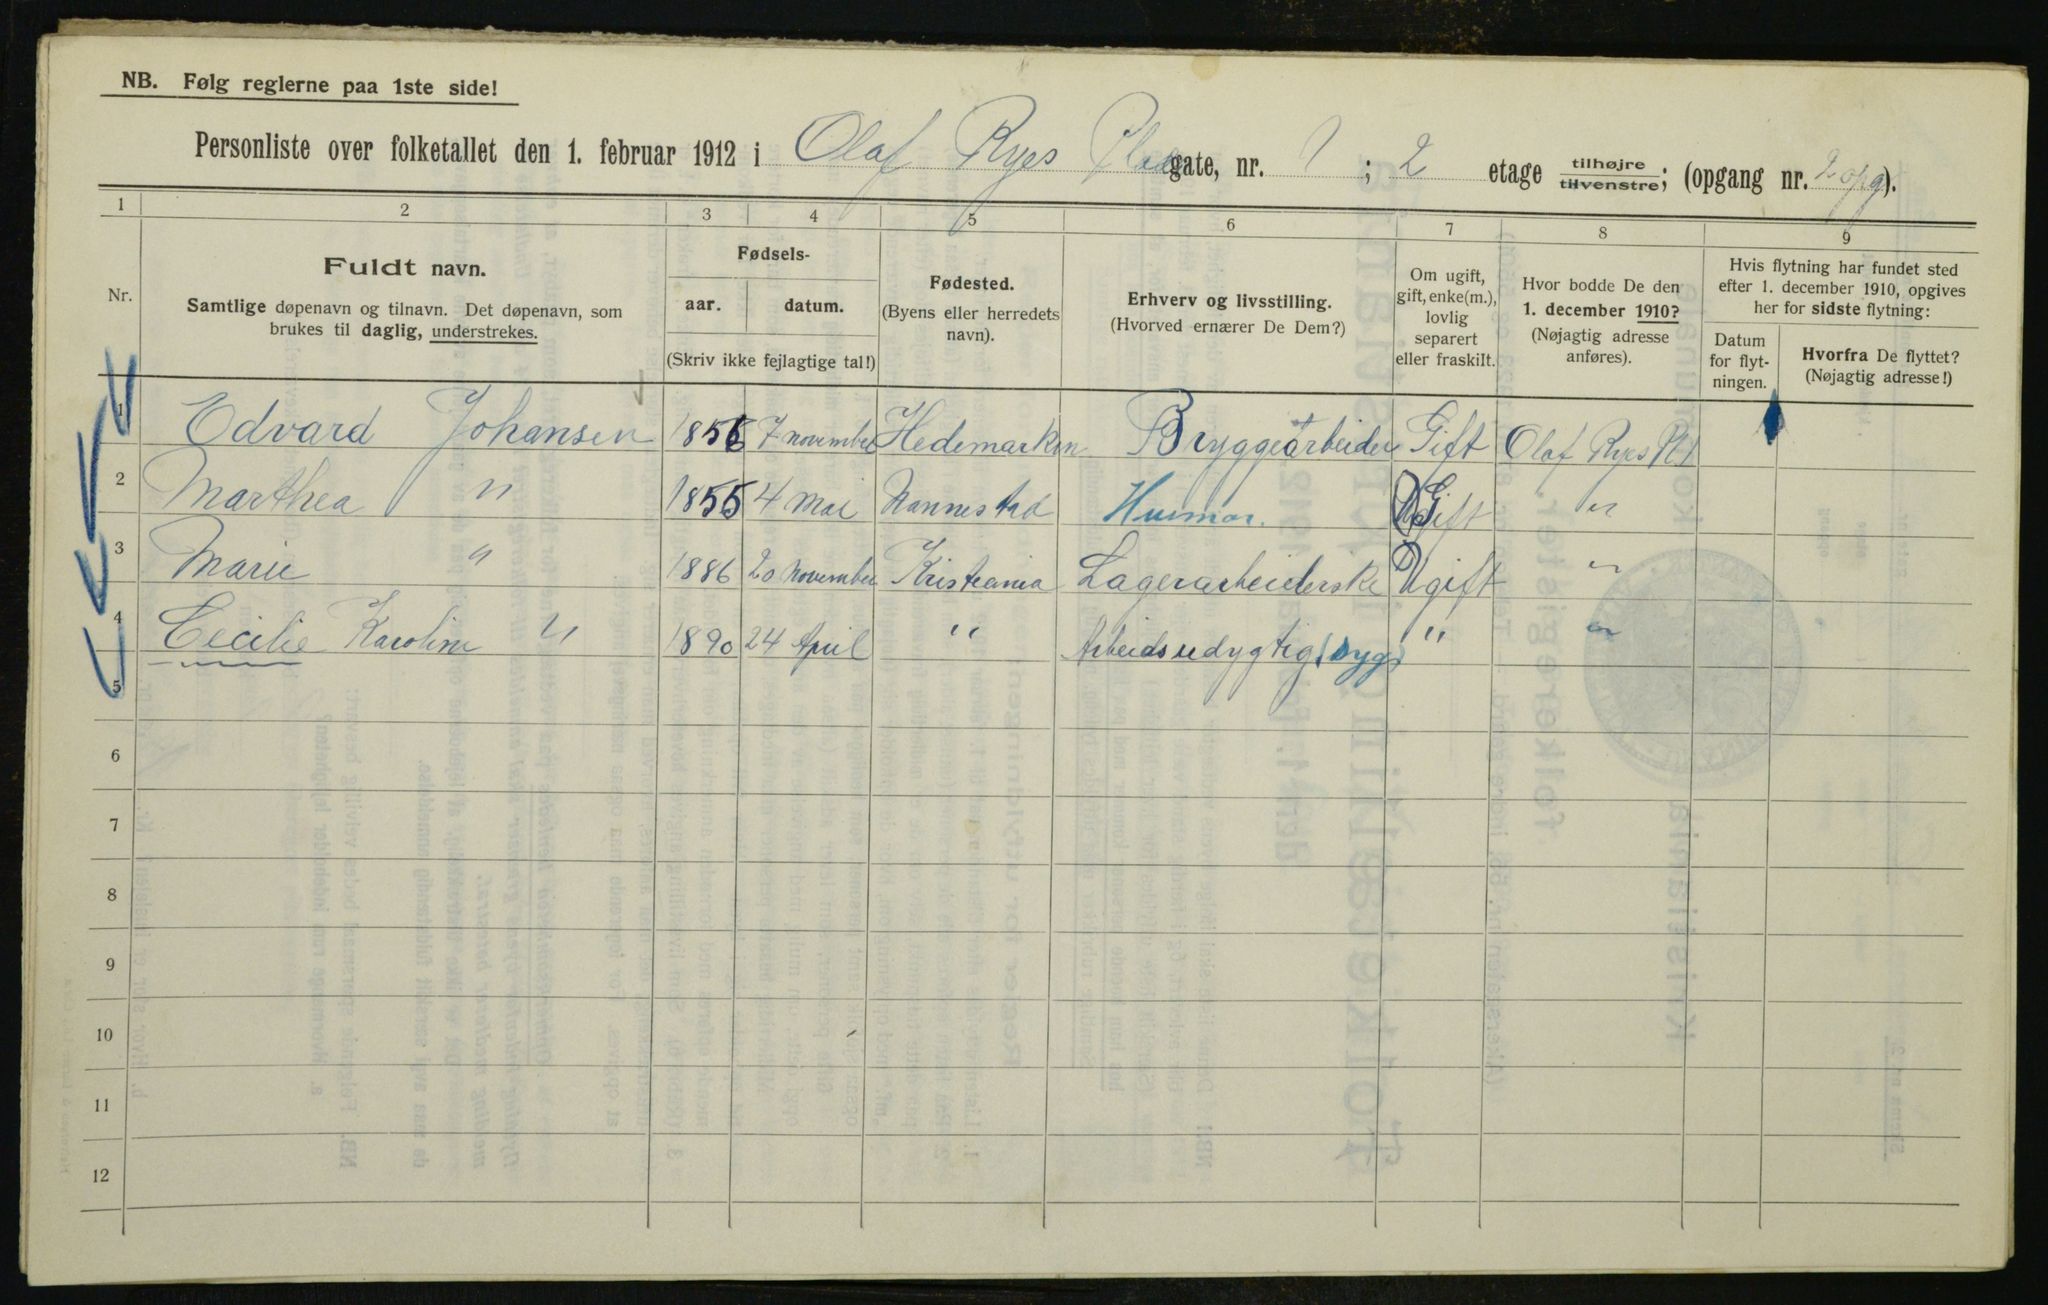 NB. Følg reglerne paa 1ste side!
Personliste over folketallet den 1. februar 1912 i Olaf Ryes Plads gate, nr. 1; 2 etage tilhøjre/tilvenstre; (opgang nr. 2 opg).
1 2 3 4 5 6 7 8 9
Nr.
Fuldt navn.
Samtlige døpenavn og tilnavn. Det døpenavn, som
brukes til daglig, understrekes.
Fødsels-
aar. datum.
(Skriv ikke fejlagtige tal!)
Fødested.
(Byens eller herredets
navn).
Erhverv og livsstilling.
(Hvorved ernærer De Dem?)
Om ugift,
gift, enke(m.),
lovlig
separert
eller fraskilt.
Hvor bodde De den
1. december 1910?
(Nøjagtig adresse
anføres).
Hvis flytning har fundet sted
efter 1. december 1910, opgives
her for sidste flytning:
Datum
for flyt-
ningen.
Hvorfra De flyttet?
(Nøjagtig adresse!)
1 Edvard Johansen 1856 7 november Hedemarken Bryggearbeider Gift Olaf Ryes Pl 1
2 Marthea " 1855 4 Mai Nannestad Husmor. Gift "
3 Marie " 1886 20 November Kristiania Lagerarbeiderske Ugift "
4 Cecilie Karoline " 1890 24 April " Arbeidsudygtig (syg) " "
5
6
7
8
9
10
11
12